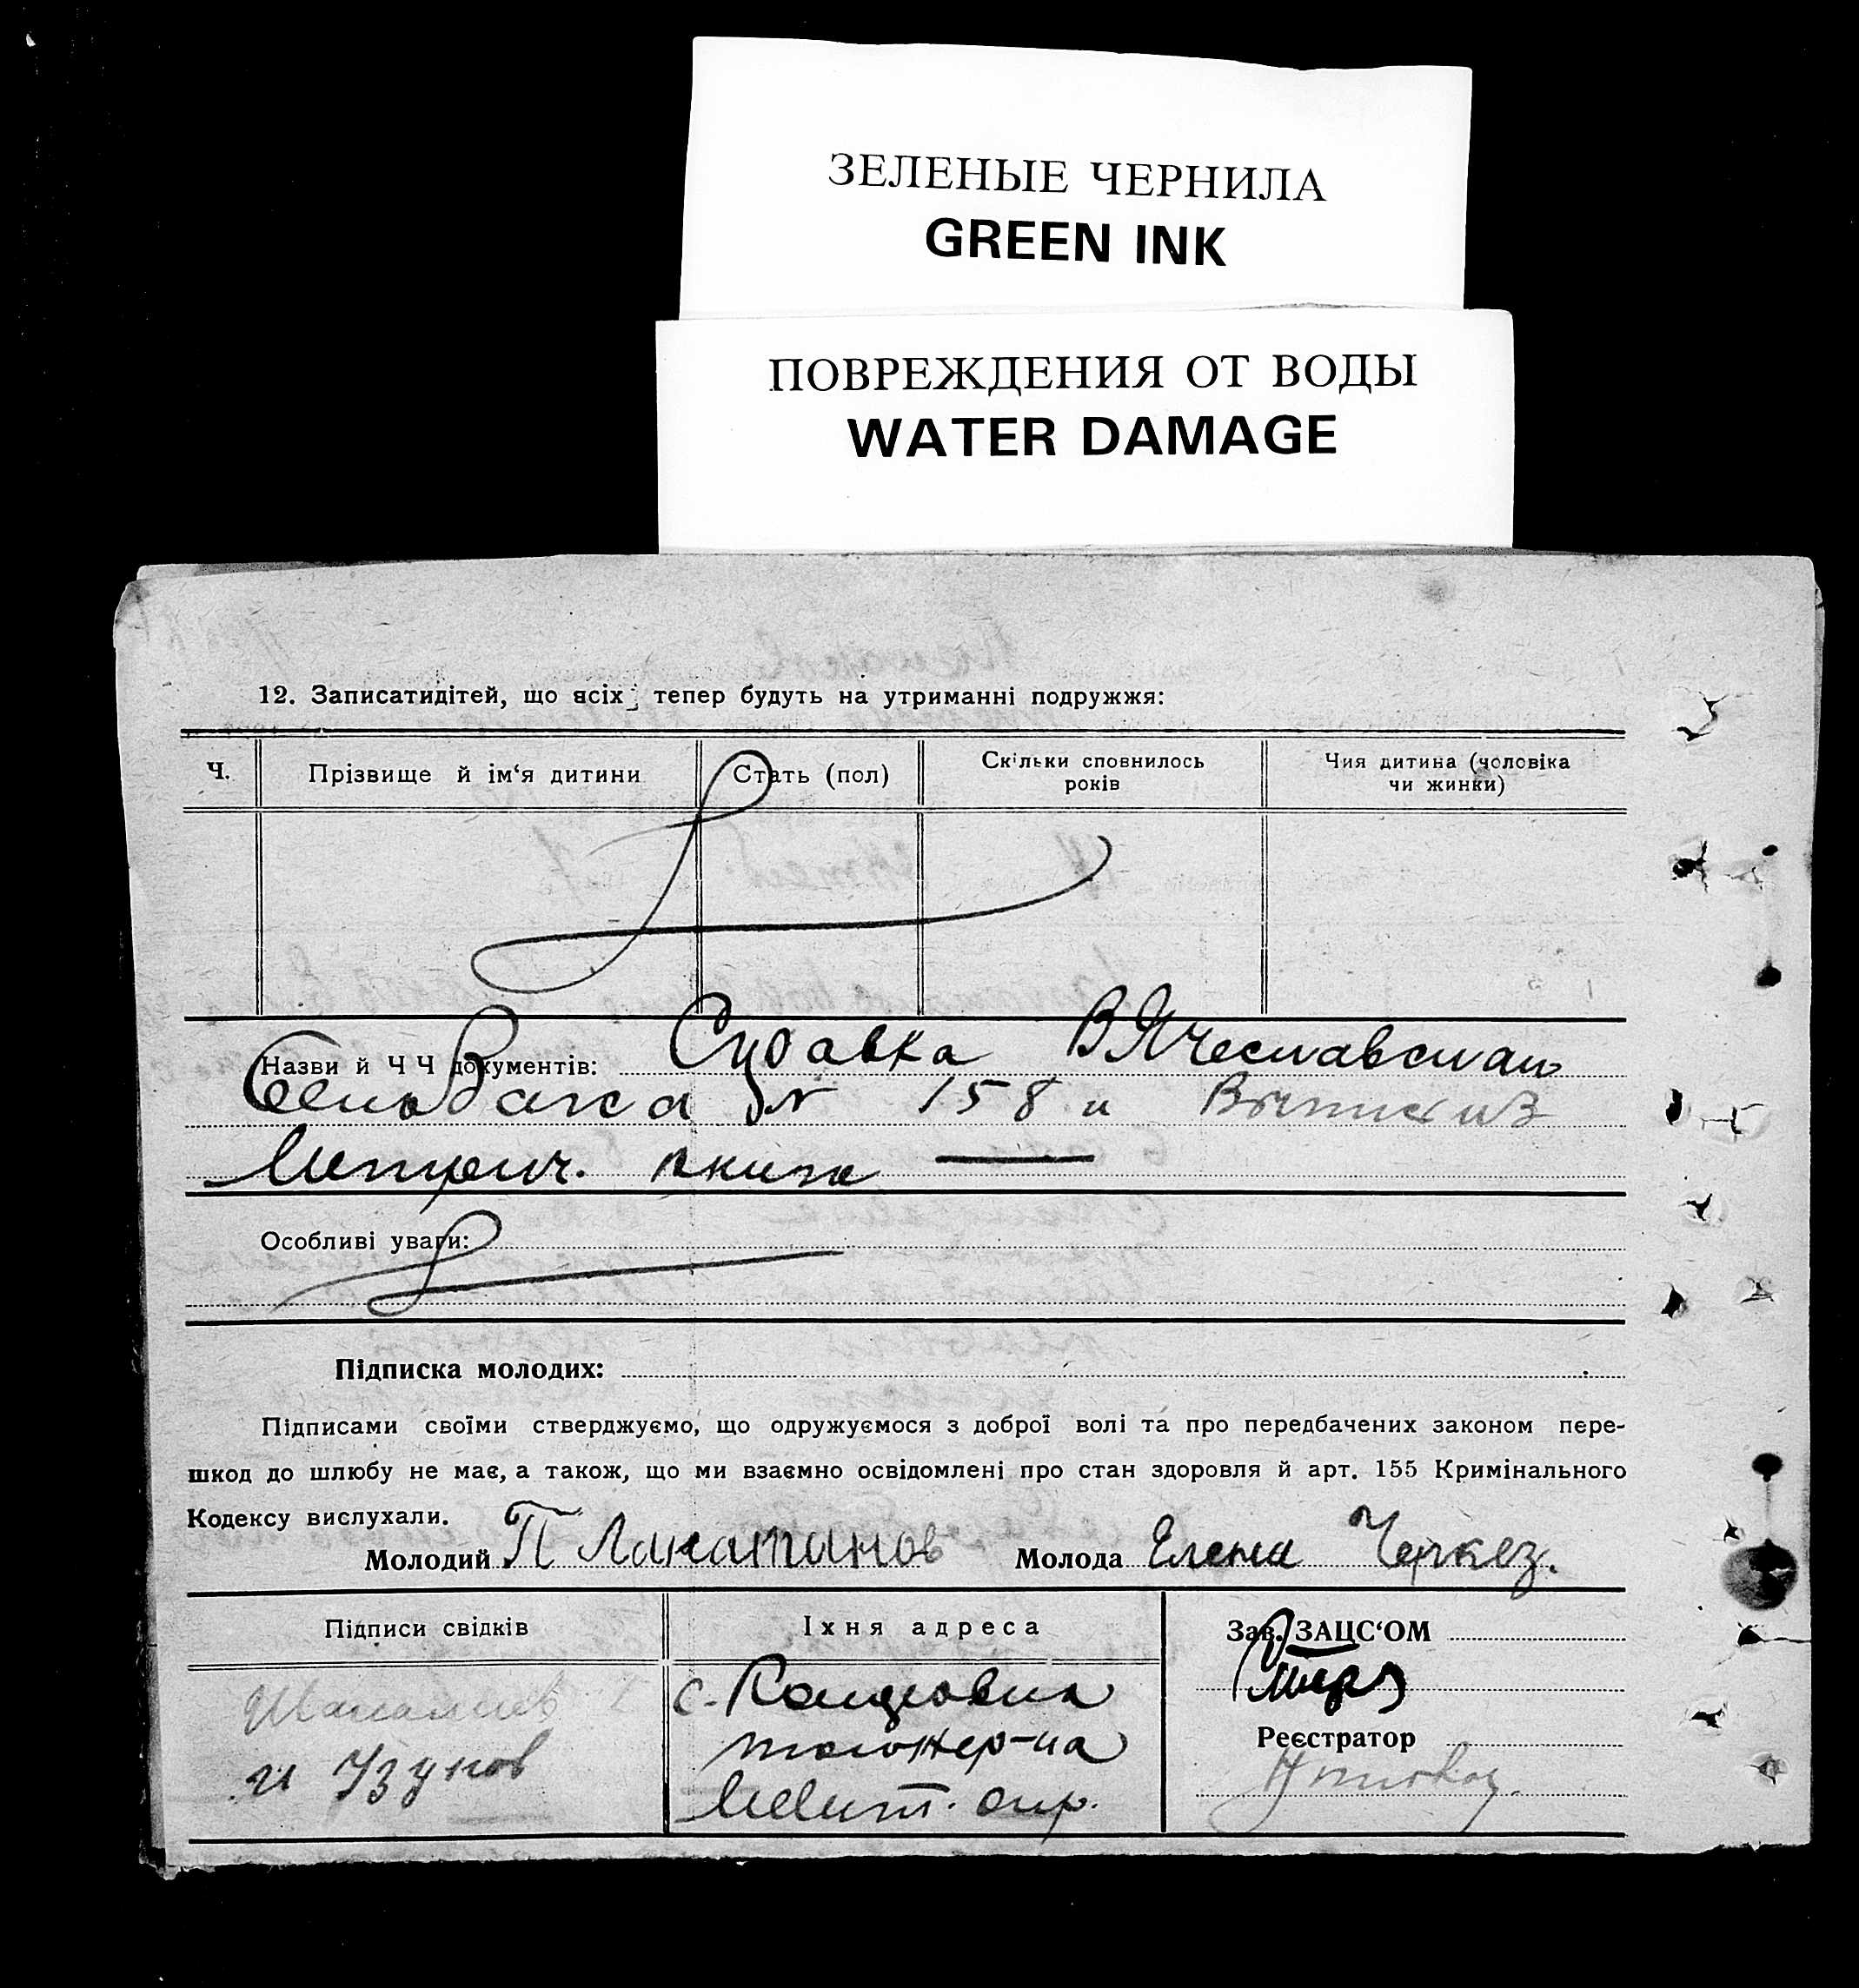 ЗЕЛЕНЫЕ ЧЕРНИЛА
GREEN INK
ПОВРЕЖДЕНИЯ ОТ ВОДЫ
WATER DAMAGE
12. Записатидітей, що всіх тепер будуть на утриманні подружжя:
Ч. Прізвище й ім‘я дитини Стать (пол) Скільки сповнилось років Чия дитина (чоловіка чи жинки)
Назви й Ч Ч документів: Справка
№ 158 и Выписки з
Метрич. книги
Особливі уваги:
Підписка молодих:
Підписами своїми стверджуємо, що одружуємося з доброї волі та про передбачених законом пере-
шкод до шлюбу не має, а також, що ми взаємно освідомлені про стан здоровля й арт. 155 Кримінального
Кодексу вислухали.
Молодий П Молода Елена Черкез.
Підписи свідків Іхня адреса Зав. ЗАЦС‘ОМ
с.
Реєстратор
и Узунов
окр.